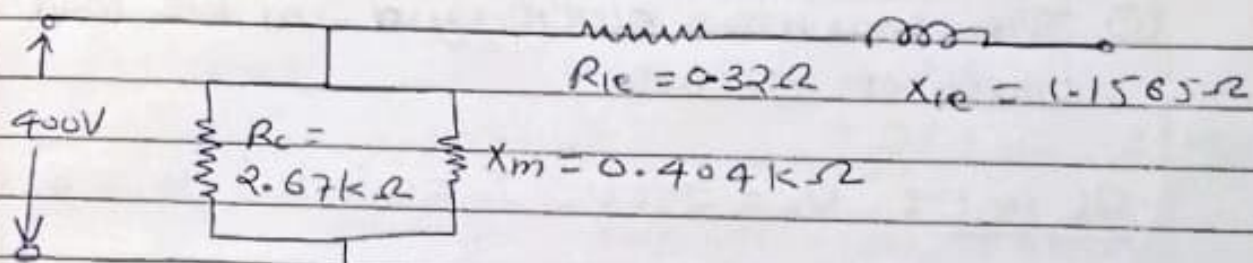 R1e = 0.32Ω X1e = 1.1565Ω
400V
Rc =
2.67kΩ
Xm = 0.404kΩ